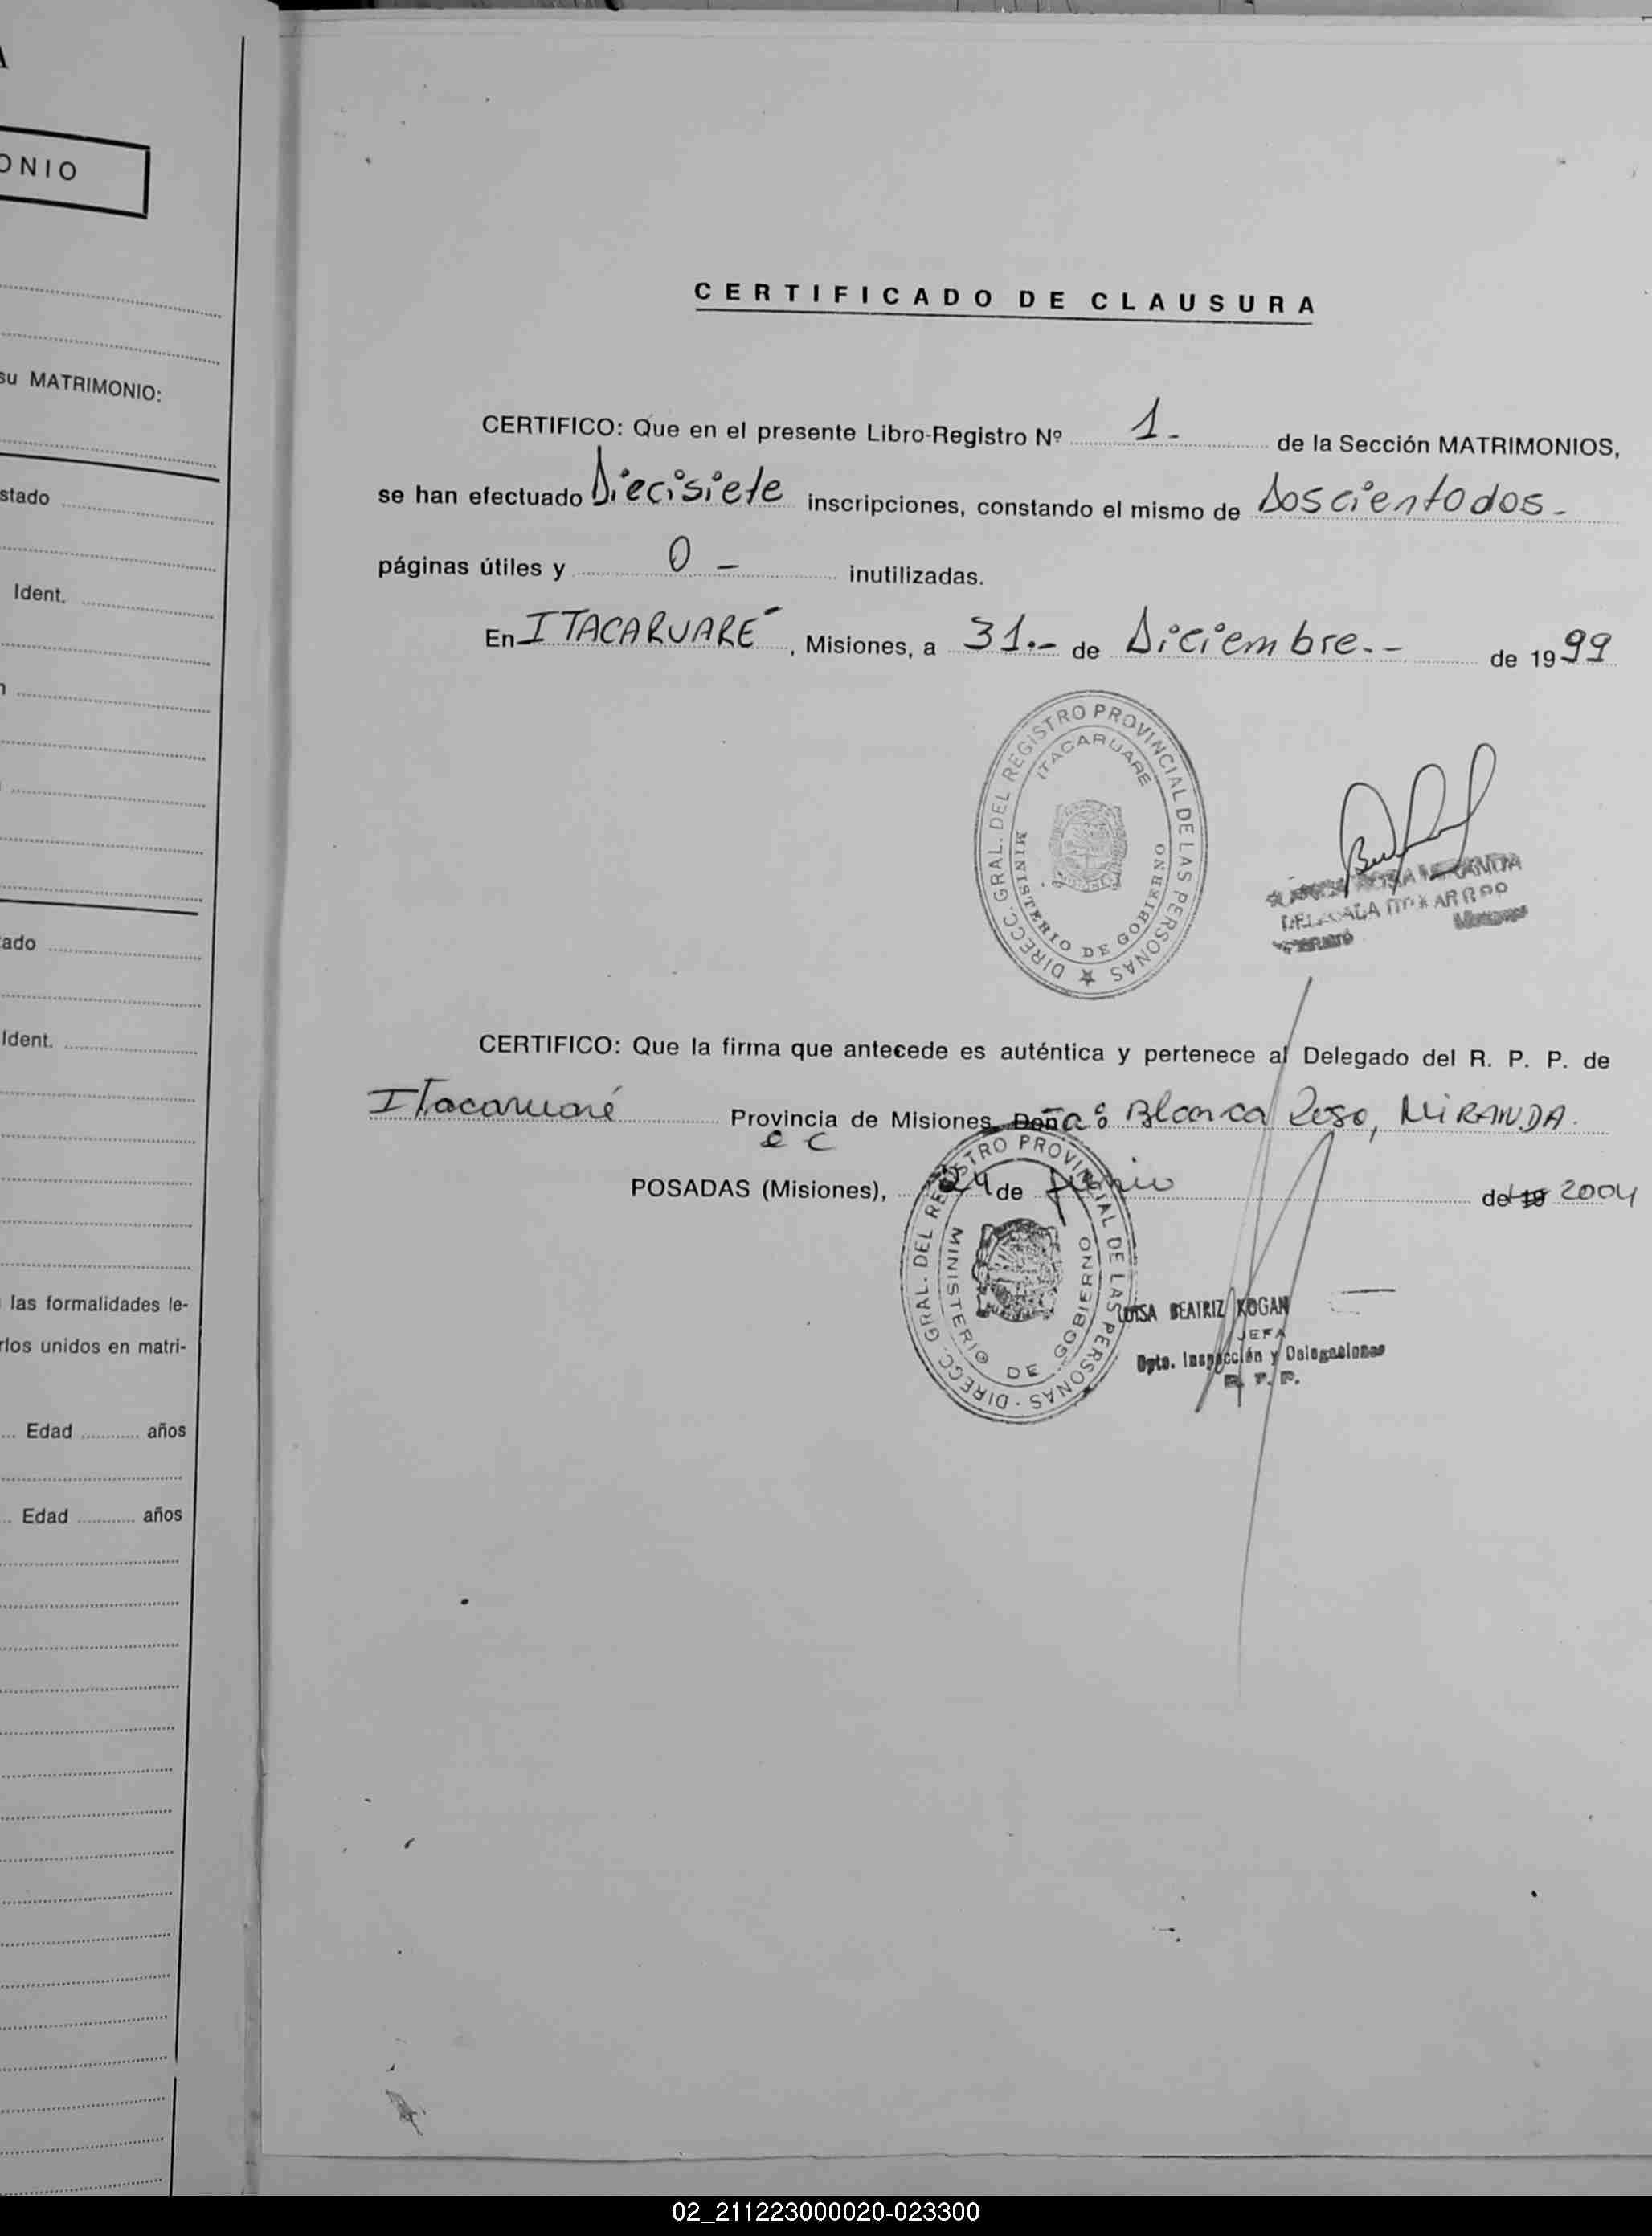 A
ONIO
su MATRIMONIO:
stado
Ident.
n
tado
Ident.
las formalidades le-
rlos unidos en matri-
Edad años
Edad años
CERTIFICADO DE CLAUSURA
CERTIFICO: Que en el presente Libro-Registro Nº 1.- de la Sección MATRIMONIOS,
se han efectuado Diecisiete inscripciones, constando el mismo de Doscientodos-
páginas útiles y 0 - inutilizadas.
En ITACARUARÉ, Misiones, a 31.- de Diciembre.- de 1999
DIRECC. GRAL. DEL REGISTRO PROVINCIAL DE LAS PERSONAS
ITACARUARE
MINISTERIO DE GOBIERNO
ROSA MIRANDA
DELEGADA
CERTIFICO: Que la firma que antecede es auténtica y pertenece al Delegado del R. P. P. de
Itacaruaré Provincia de Misiones, Doña: Blanca Rosa, MIRANDA.
POSADAS (Misiones), 24 de de 19 2004
DIRECC. GRAL. DEL REGISTRO PROVINCIAL DE LAS PERSONAS
MINISTERIO DE GOBIERNO
LUISA BEATRIZ KOGAN
JEFA
Dpto. Inspección y Delegaciones
R. P. P.
02_211223000020-023300